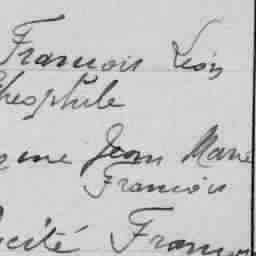 Francois Léon
Theophile
Jean Marie
Francois
cité Franço